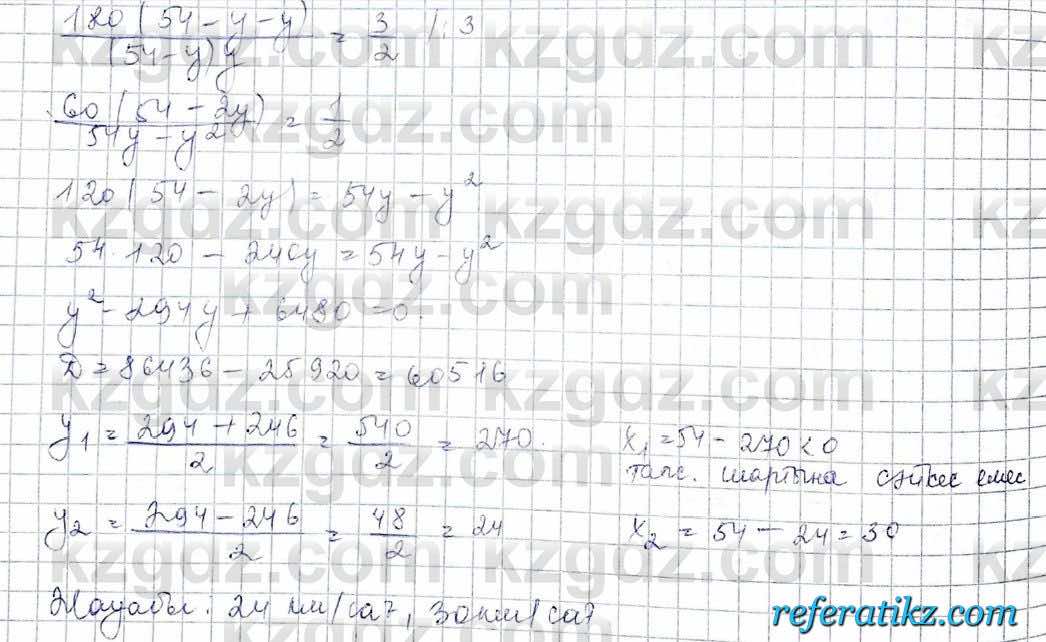 180(54-y-y)/(54-y)y = 3/2 /:3
60(54-2y)/54y-y² = 1/2
120(54-2y) = 54y-y²
54·120-240y=54y-y²
y²-294y+6480=0.
D=86436-25920=60516
y₁ = 294+246/2 = 540/2 = 270. x₁=54-270<0
тапс. шартына сәйкес емес
y₂ = 294-246/2 = 48/2 = 24 x₂ = 54-24=30
Жауабы: 24 км/сағ, 30км/сағ
kzgdz.com
referatikz.com